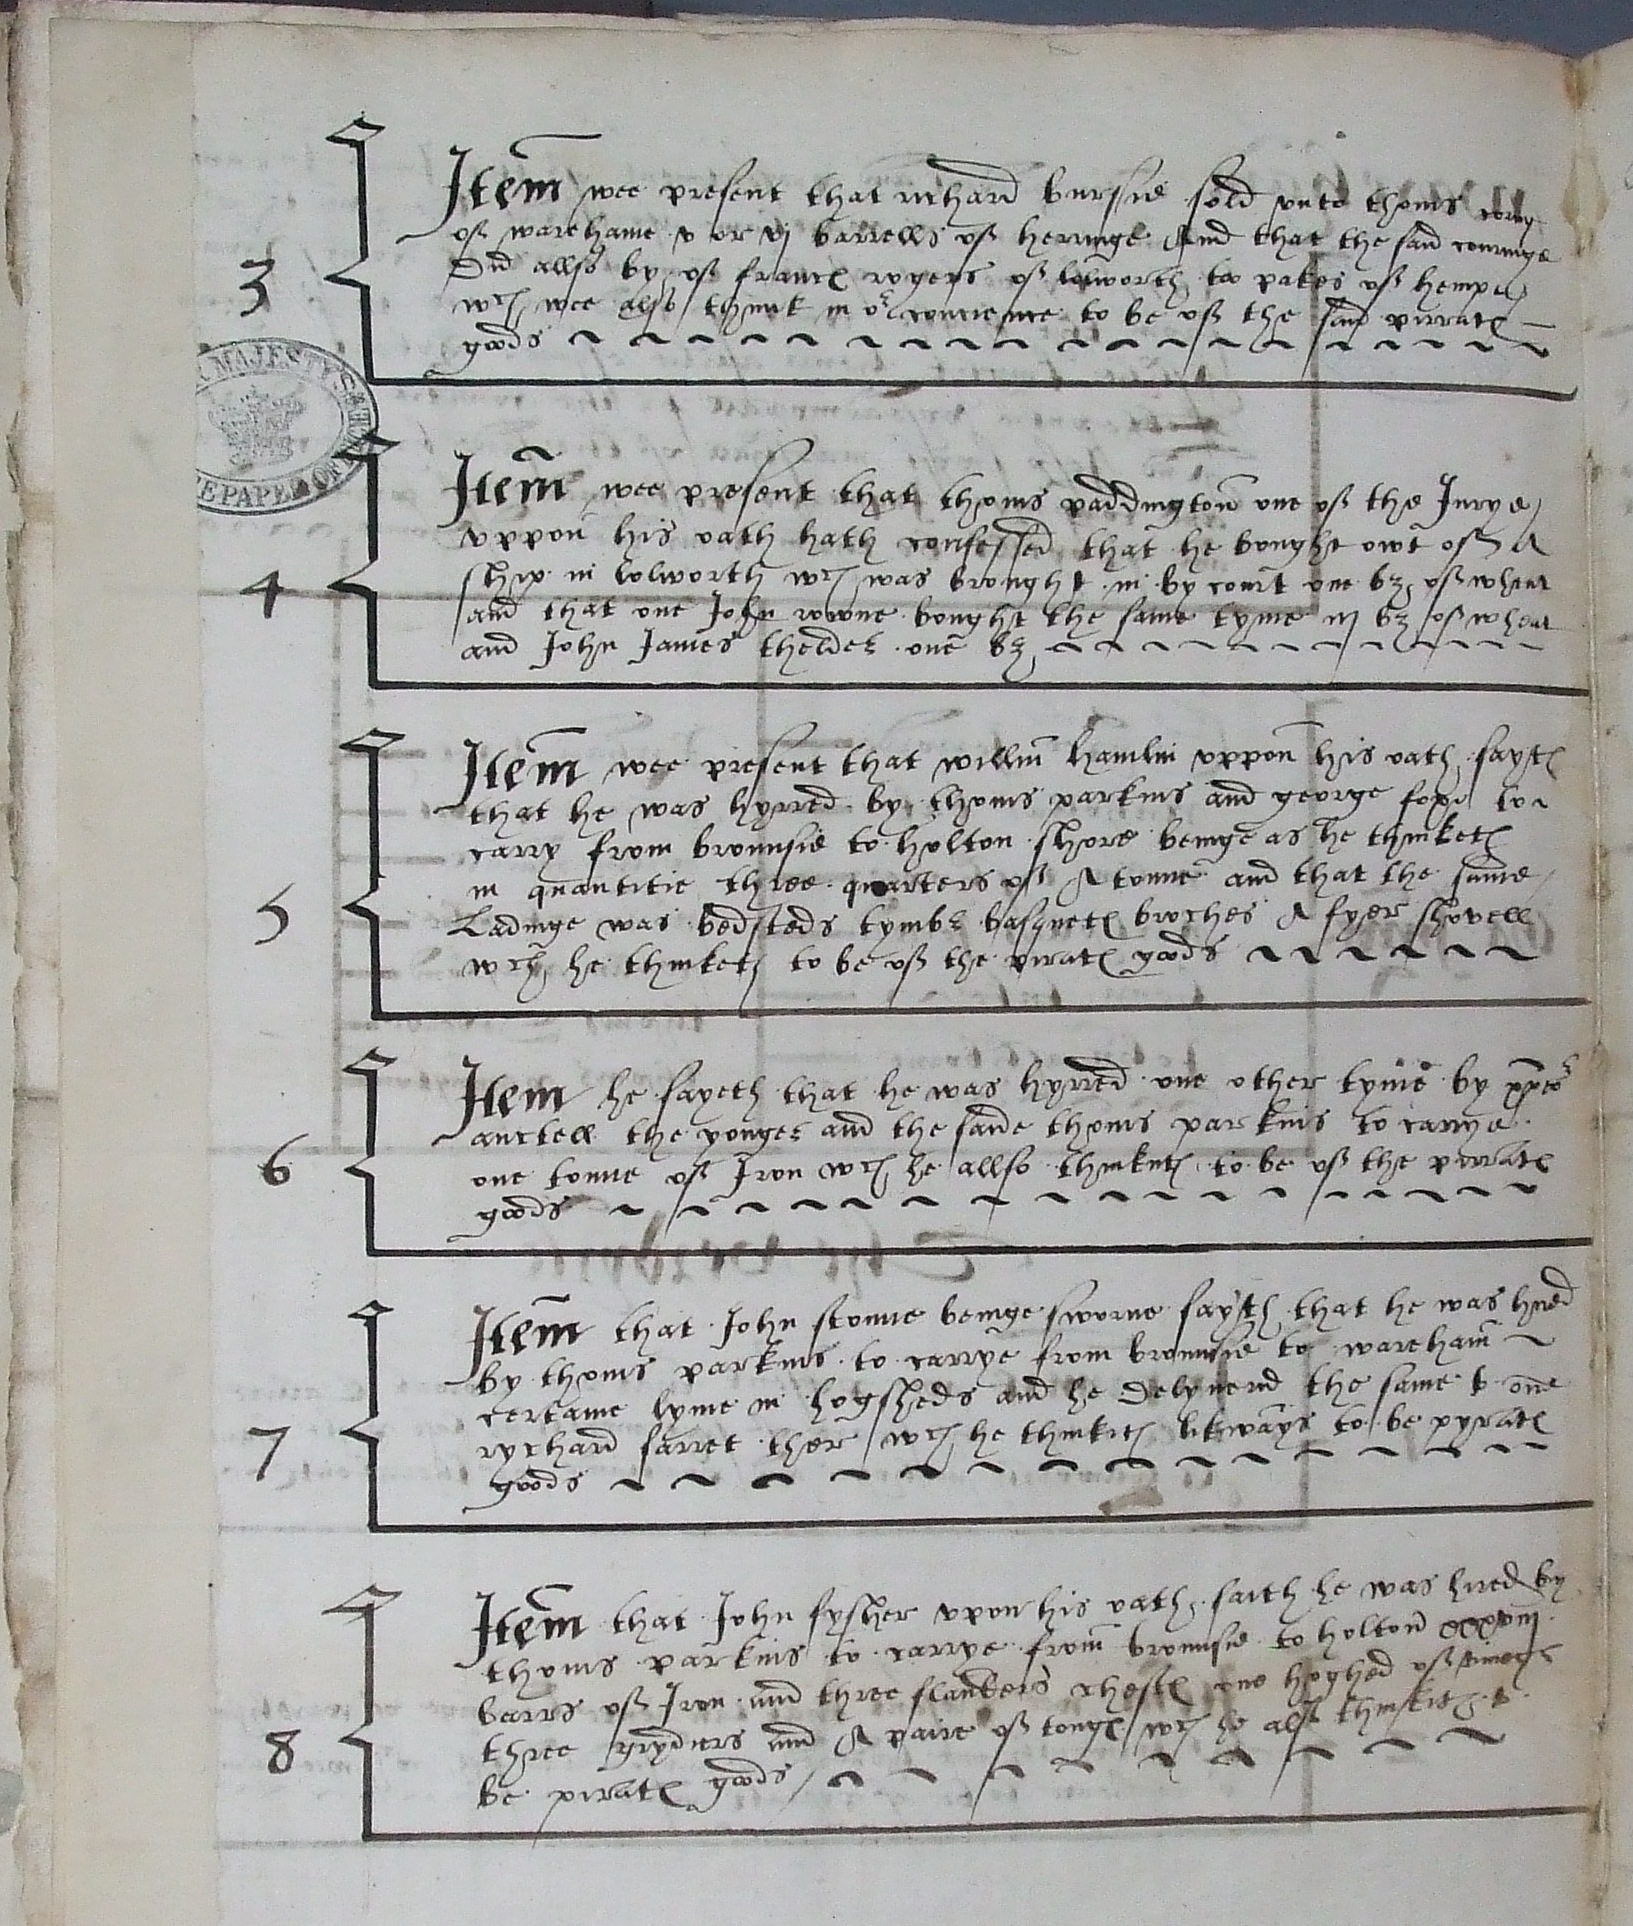 3
Item wee present that richard bursie sold unto thoms
of warehame v or vj barrells of herringe And that the said couringe
Did allso by of francs rogers of lolworth too pakes of hempe
wch wee also think in or concience to be of the said pirrats
goods
MAJESTY'S
E PAPER OF
4
Item wee present that thoms paddington one of the Jurye
uppon his oath hath confessed that he bought owt of A
ship in lolworth wch was brought in by court one bz of wheat
and that one John rowne bought the same tyme iij bz of wheat
and John James thelder one bz
5
Item wee present that willm hamlin uppon his oath sayth
that he was hyrred by thoms parkins and george to
carry from brounsie to holton shore beinge as he thinketh
in quantitie three quarters of A tonne and that the same
Ladinge was bedsteds tymbr basquets broches A fyer shovell
wch he thinketh to be of the pirats goods
6
Item he sayeth that he was hyrred one other tyme by
anctell the yonger and the saide thoms parkins to carrye
one tonne of Iron wch he allso thinketh to be of the pirrats
goods
7
Item that John stonne beinge sworne sayth that he was hired
by thoms parkins to carrye from brounsie to wareham
certaine lyme in hogsheds and he delyuerid the same to one
rychard farret ther wch he thinkith likways to be pyrats
goods
8
Item that John fysher upon his oath saith he was hired by
thoms parkins to carrye from brounsie to holton xxxviij
barrs of Iron and three flanders chests one hoghed of
three grydiers and A paire of tongs wch he also thinkith to
be pirats goods